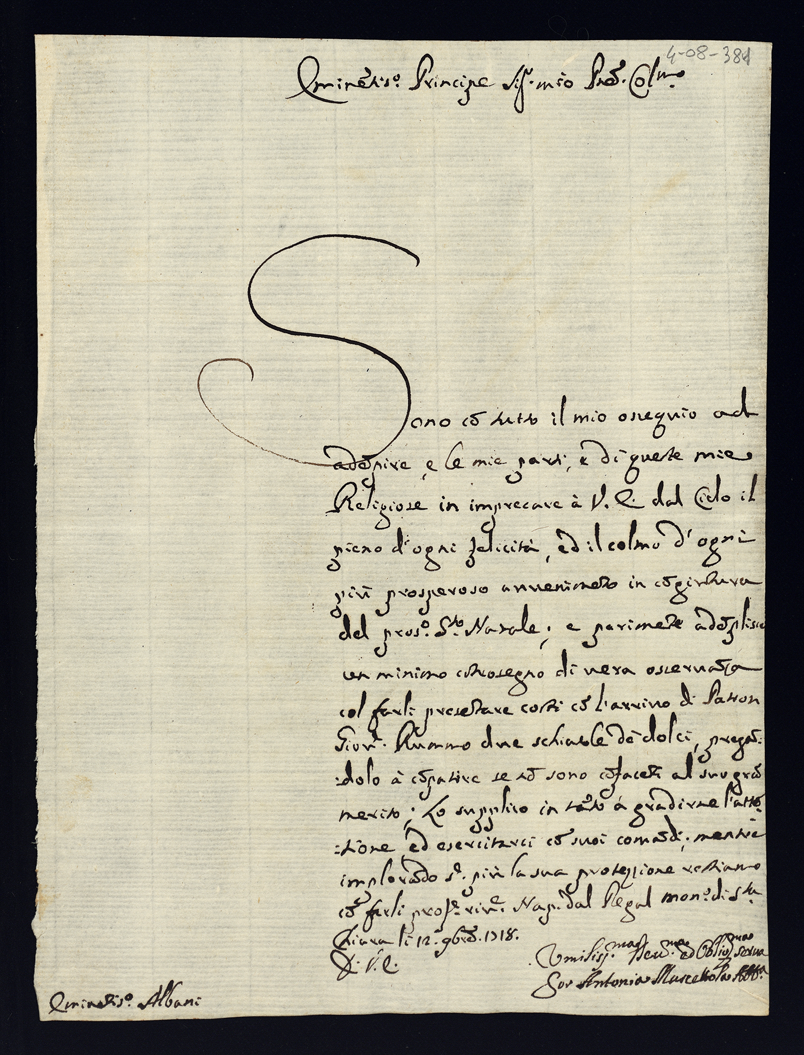 4-08-381
Emine͂tis.º Principe Sig.r mio Pro͂n. Col.mo
Sono co͂ tutto il mio ossequio ad
ado͂pire, e le mie parti, e di queste mie
Religiose in imprecare à V. E. dal Cielo il
pieno d'ogni felicità, ed il colmo d'ogni
più prosperoso avvenime͂to in co͂giu͂tura
del pros.º S.to Natale; e parime͂te ado͂plisco
un minimo co͂trosegno di vera osserva͂za
col farli prese͂tare costì co͂ l'arrivo di Patron
Giov.e Rummo due schiatole de dolci, prega͂=
=dolo à co͂patire se no͂ sono co͂face͂ti al suo gra͂
merito; Lo supplico in ta͂to à gradirne l'atte͂=
=tione ed esercitarci co͂ suoi coma͂di; mentre
implora͂do s.e più la sua protezzione restiamo
co͂ farli prof.e riv.e Nap. dal Regal mon.º di S.ta
Chiara li 12. 9bre͂. 1718.
D. V. E.
Umilis.ma Dev.ma ed Oblig.ma Serva
Sor Antonia Abb.a
Emine͂tis.º Albani